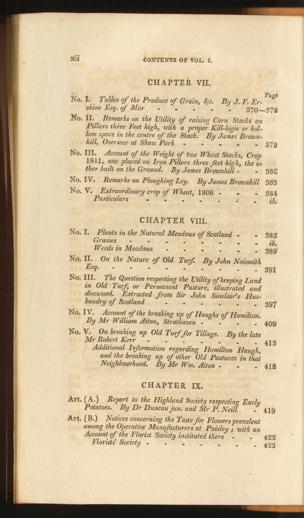 xii CONTENTS OF VOL. I.
CHAPTER VII.
Page
No. I. Tables of the Produce of Grain, &c. By J. F. Er-
skine Esq. of Mar - - - - - 370—378
No. II. Remarks on the Utility of raising Corn Stacks on
Pillars three Feet high, with a proper Kill-logie or hol-
low space in the centre of the Stack. By James Brown-
hill, Overseer at Shaw Park - - - - - 379
No. III. Account of the Weight of two Wheat Stacks, Crop
1811, one placed on Iron Pillars three feet high, the o-
ther built on the Ground. By James Brownhill - - 382
No. IV. Remarks on Ploughing Ley. By James Brownhill 383
No. V. Extraordinary crop of Wheat, 1806 - - - 384
Particulars - - - - - - ib.
CHAPTER VIII.
No. I. Plants in the Natural Meadows of Scotland - - 385
Grasses - - - - - - ib.
Weeds in Meadows - - - - - 389
No. II. On the Nature of Old Turf. By John Naismith
Esq. - - - - - - - 391
No. III. The Question respecting the Utility of keeping Land
in Old Turf, or Permanent Pasture, illustrated and
discussed. Extracted from Sir John Sinclair's Hus-
bandry of Scotland - - - - - 397
No. IV. Account of the breaking up of Haughs of Hamilton.
By Mr William Aiton, Strathaven - - - - 409
No. V. On breaking up Old Turf for Tillage. By the late
Mr Robert Kerr - - - - - 413
Additional Information regarding Hamilton Haugh,
and the breaking up of other Old Pastures in that
Neighbourhood. By Mr Wm. Aiton - - - 418
CHAPTER IX.
Art. (A.) Report to the Highland Society respecting Early
Potatoes. By Dr Duncan jun. and Mr P. Neill - 419
Art. (B.) Notices concerning the Taste for Flowers prevalent
among the Operative Manufacturers at Paisley; with an
Account of the Florist Society instituted there - - 422
Florists' Society - - - - - - 423